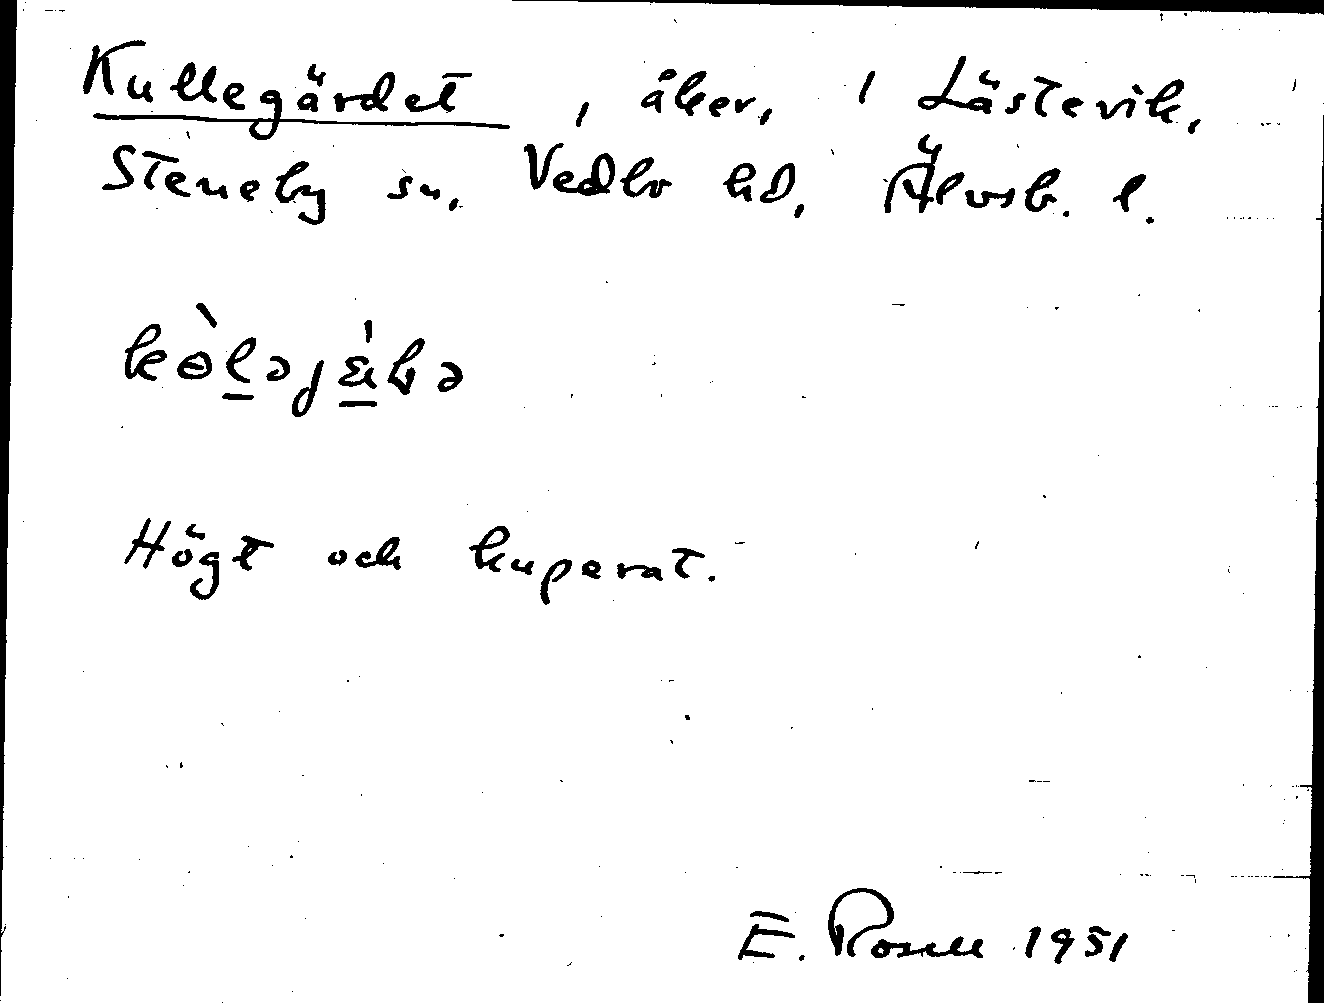 Kullegärdet, åker, 1 Lästevik,
Steneby sn, Vedbo hd, Älvsb. l.
Högt och kuperat.
E. Rosell 1951